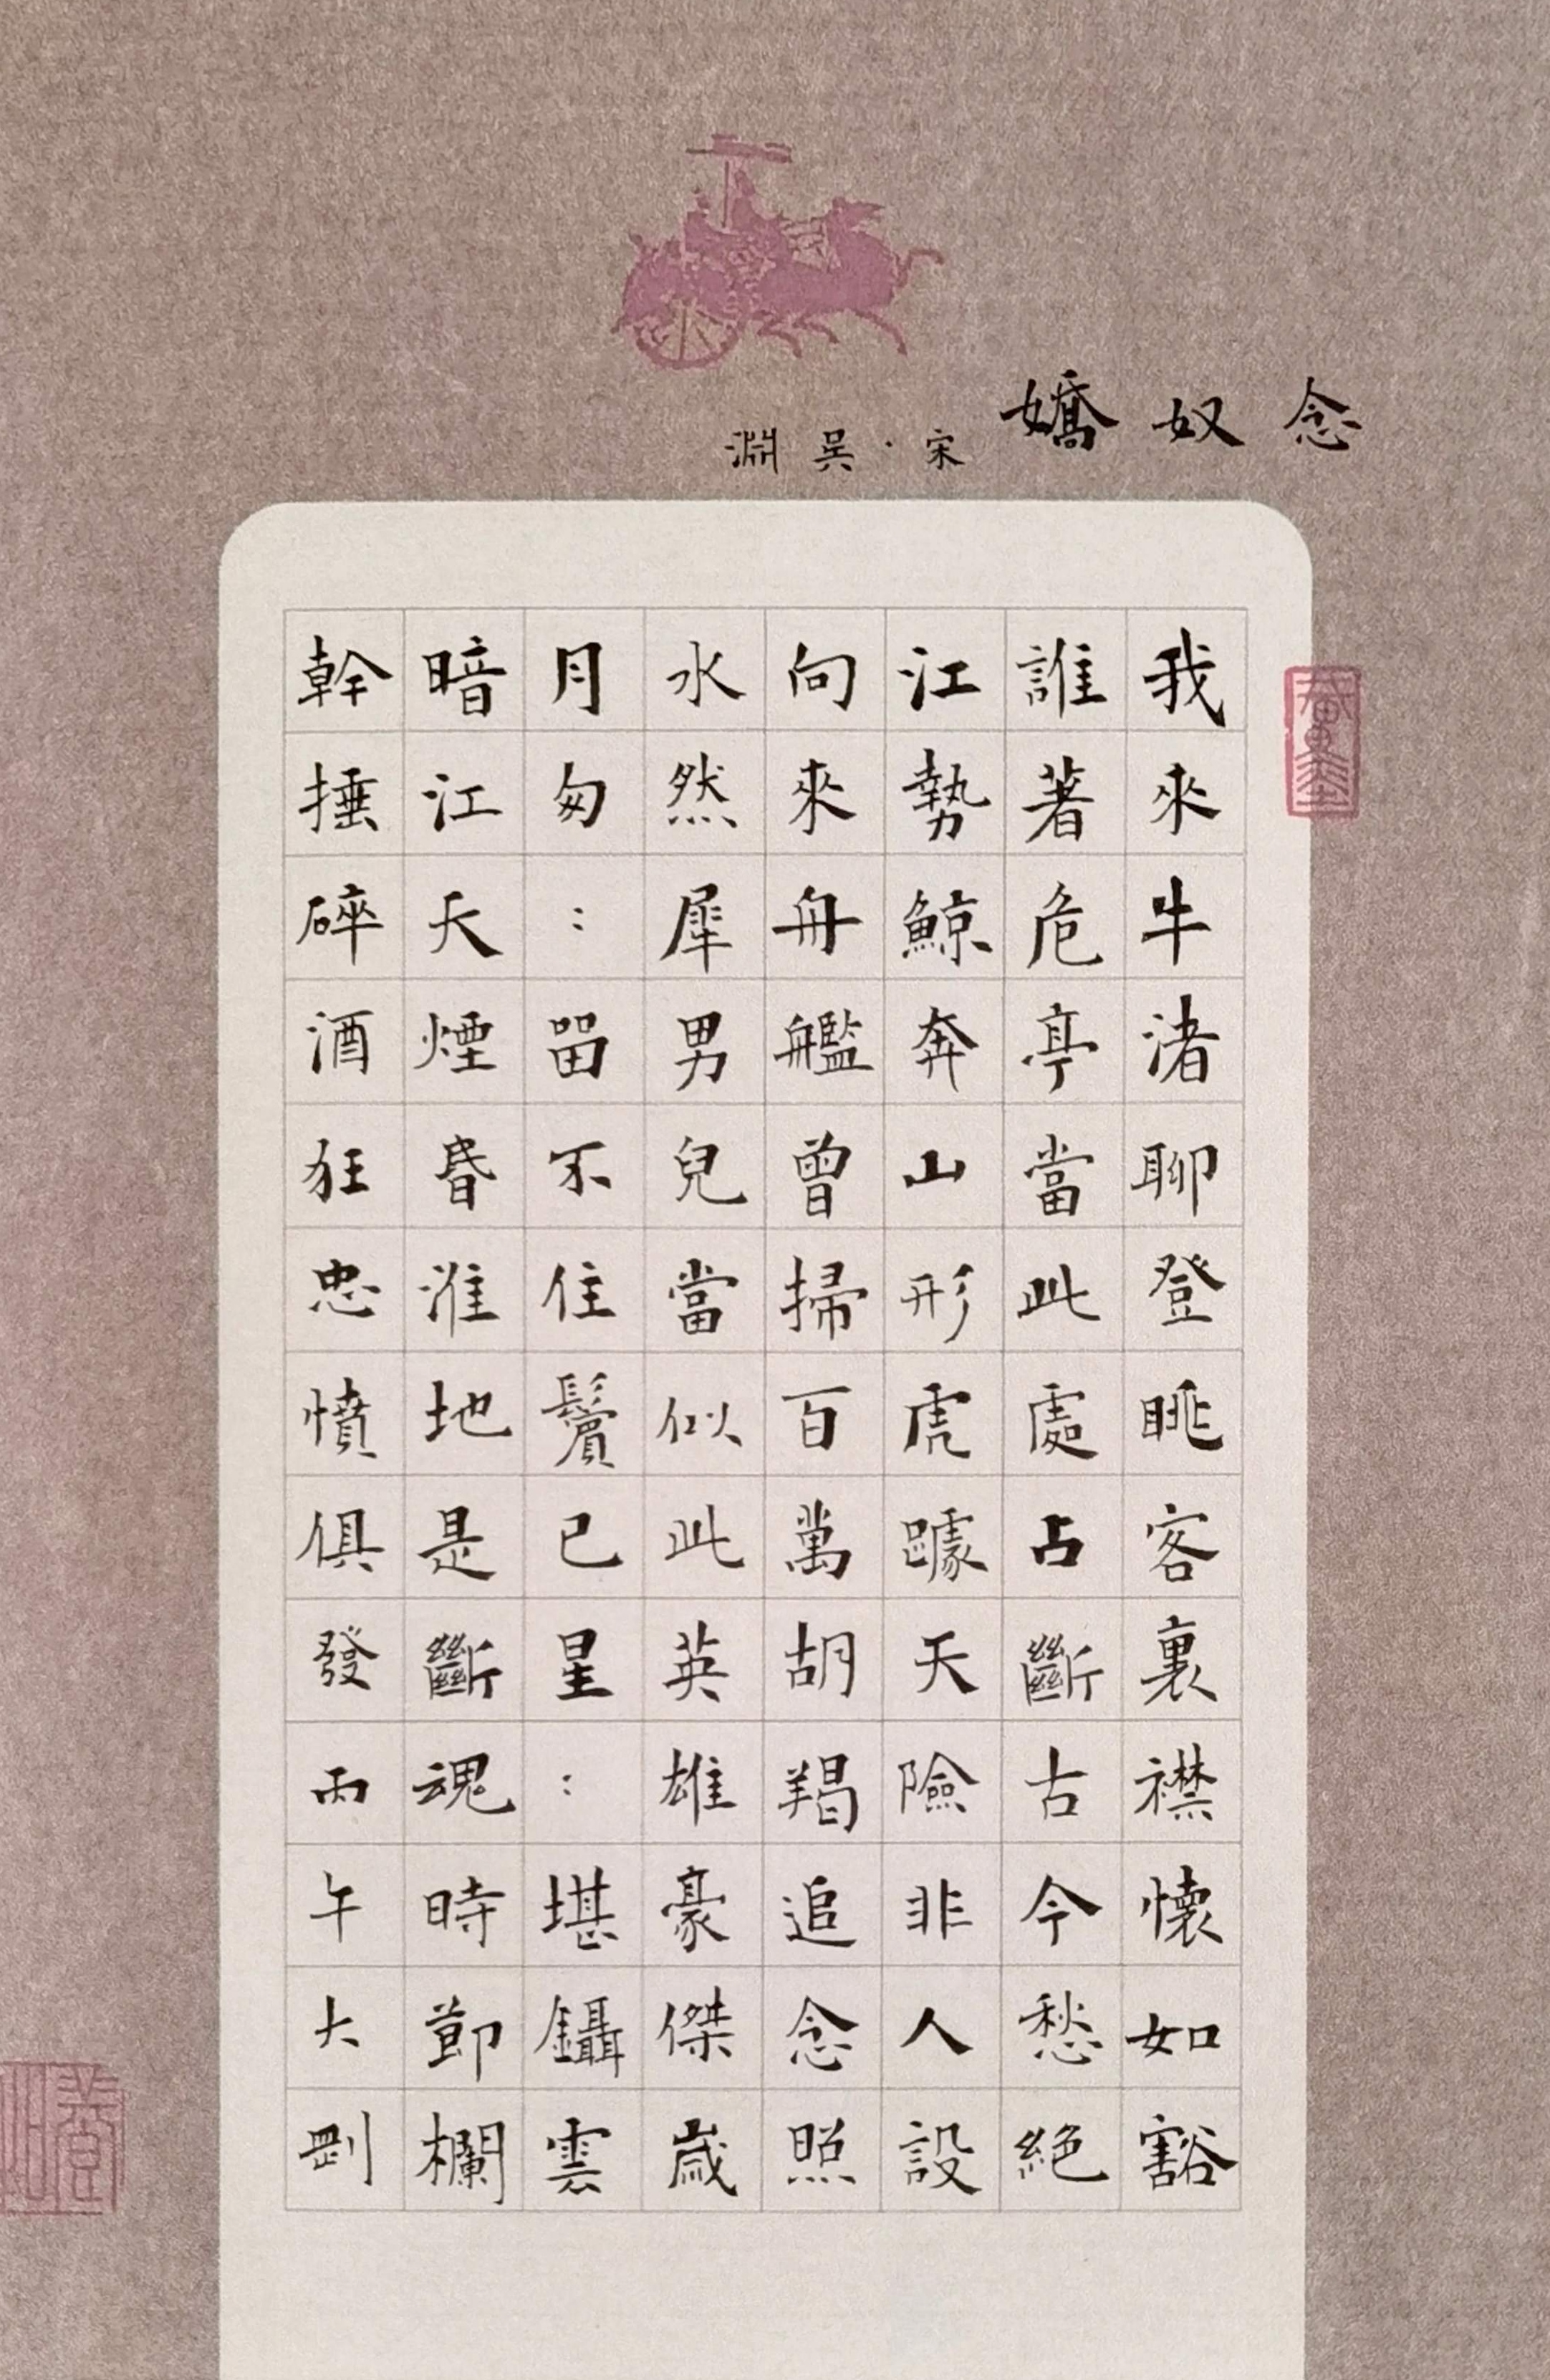 念奴嬌
宋·吳淵
我來牛渚聊登眺客裏襟懷如豁
誰著危亭當此處占斷古今愁絕
江勢鯨奔山形虎踞天險非人設
向來舟艦曾掃百萬胡羯追念照
水然犀男兒當似此英雄豪傑歲
月匆:留不住鬢已星:堪鑷雲
暗江天煙昏淮地是斷魂時節欄
幹捶碎酒狂忠憤俱發丙午大剛